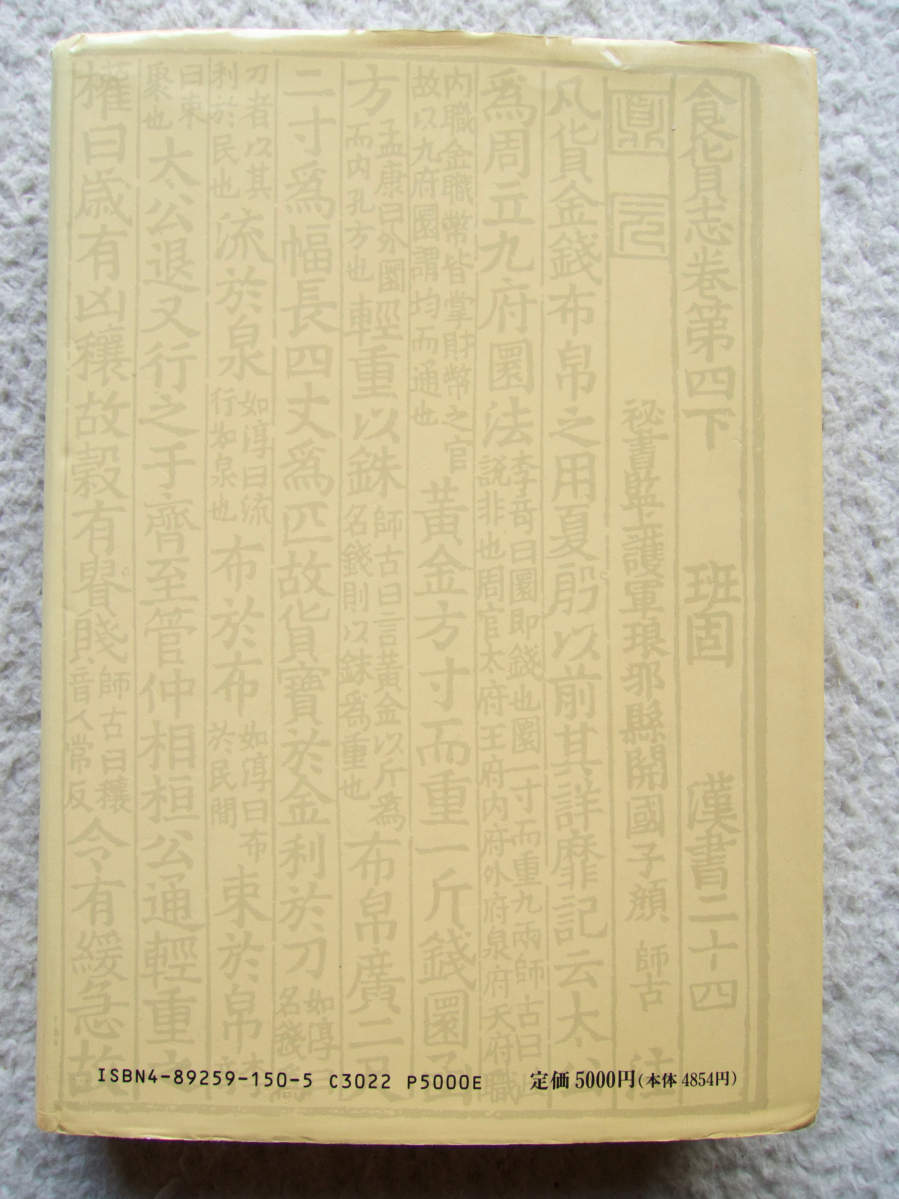 食貨志卷第四下 班固 漢書二十四
鼎 元 祕書監上護軍琅邪縣開國子顏 師古 注
凡貨金錢布帛之用夏殷以前其詳靡記云太公
爲周立九府圜法 李奇曰圜即錢也圜一寸而重九兩師古曰 說非也周官太府王府内府外府泉府天府職
内職金職幣皆掌財幣之官 故以九府圜謂均而通也 黃金方寸而重一斤錢圜函
方 孟康曰外圜輕 而内孔方也 重以銖 師古曰言黃金以斤爲 名錢則以銖爲重也 布帛廣二尺
二寸爲幅長四丈爲匹故貨寶於金利於刀 如淳 名錢爲
刀者以其 利於民也 流於泉 如淳曰流 行如泉也 布於布 如淳曰布 於民間 束於帛
曰束 聚也 太公退又行之于齊至管仲相桓公通輕重之
權曰歲有凶穰故穀有貴賤 師古曰穰 音人常反 令有緩急故
ISBN4-89259-150-5 C3022 P5000E 定価 5000円(本体 4854円)